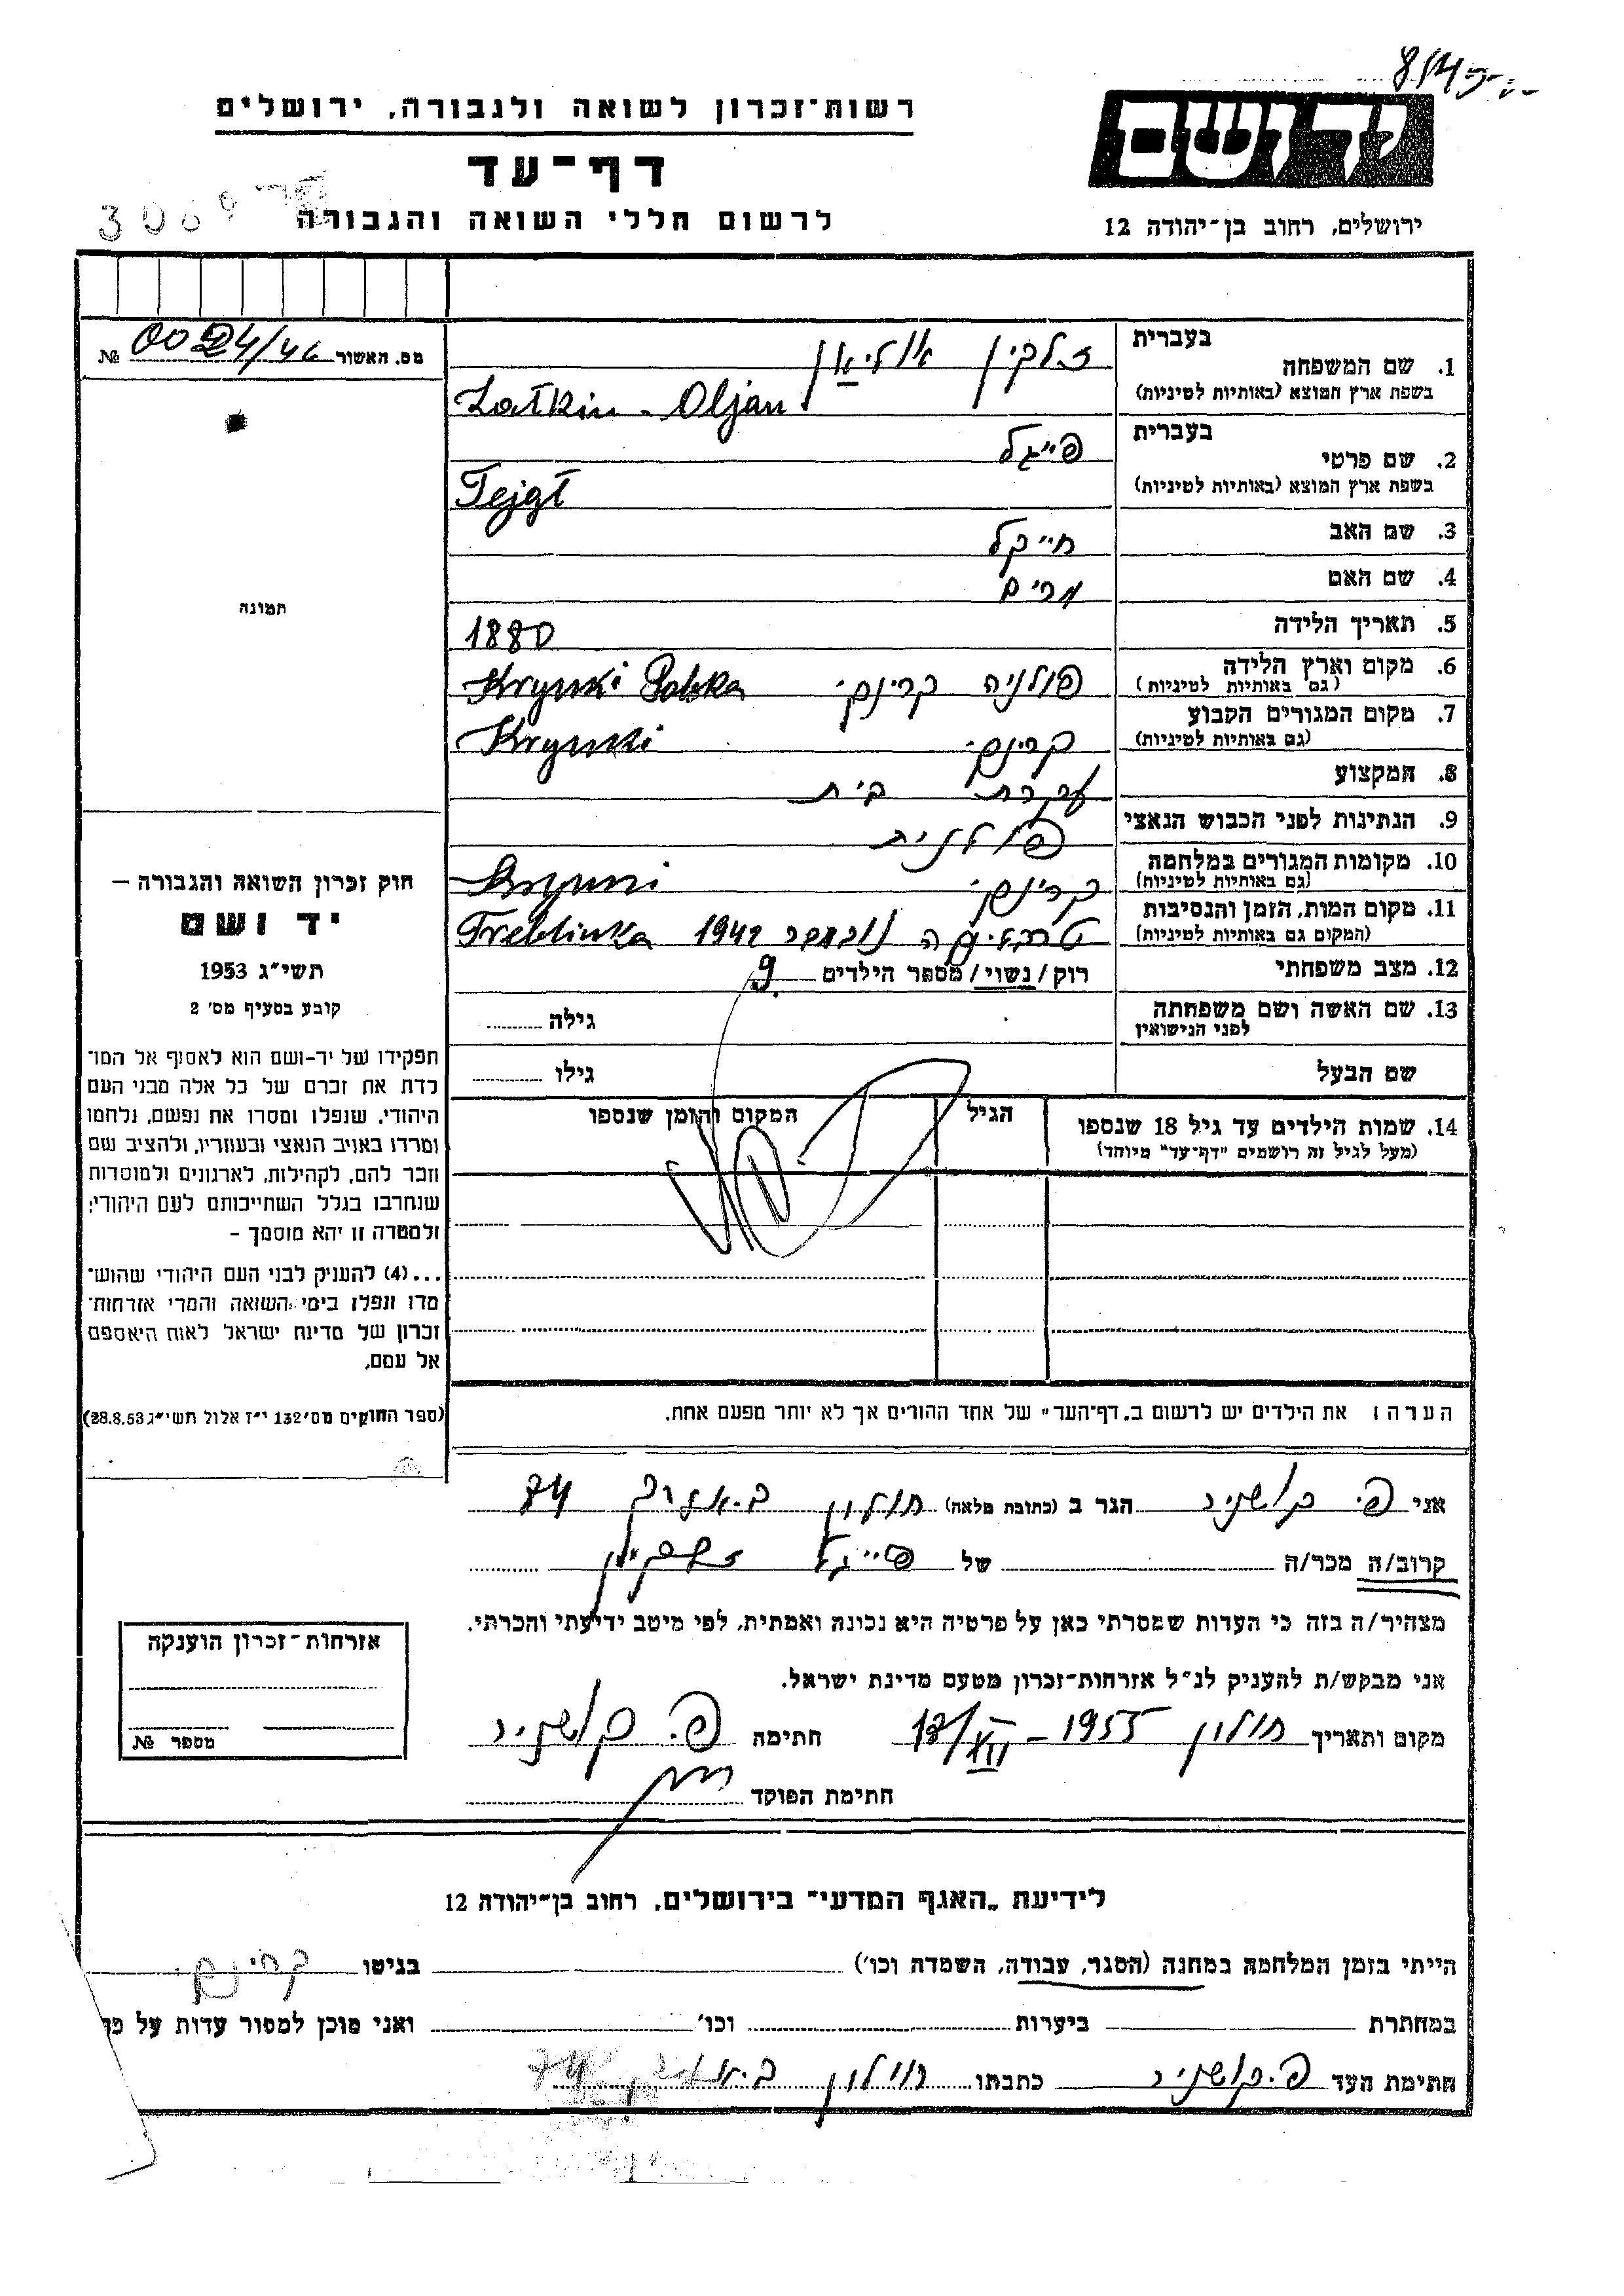 רשות־זכרון לשואה ולגבורה, ירושלים
דף־עד
לרשום חללי השואה והגבורה
יד ושם
ירושלים, רחוב בן־יהודה 12
מס. האשור № 
תמונה
1. שם המשפחה בעברית זלקין אוליאן
בשפת ארץ המוצא (באותיות לטיניות) Załkin - Oljan
2. שם פרטי בעברית פייגל
בשפת ארץ המוצא (באותיות לטיניות) Fejgł
3. שם האב חייקל
4. שם האם מרים
5. תאריך הלידה 1880
6. מקום וארץ הלידה (גם באותיות לטיניות) פולניה קרינקי Krynki Polska
7. מקום המגורים הקבוע (גם באותיות לטיניות) קרינקי Krynki
8. המקצוע עקרת בית
9. הנתינות לפני הכבוש הנאצי פולנית
10. מקומות המגורים במלחמה (גם באותיות לטיניות) קרינקי Krynki
11. מקום המות, הזמן והנסיבות (המקום גם באותיות לטיניות) טרבלינקה נובמבר 1942 Treblinka
12. מצב משפחתי רוק/ נשוי/ מספר הילדים 9
13. שם האשה ושם משפחתה לפני הנישואין גילה
שם הבעל גילו
14. שמות הילדים עד גיל 18 שנספו הגיל המקום והזמן שנספו
(מעל לגיל זה רושמים "דף־עד" מיוחד)
הערה: את הילדים יש לרשום ב„דף־העד" של אחד ההורים אך לא יותר מפעם אחת.
חוק זכרון השואה והגבורה —
יד ושם
תשי"ג 1953
קובע בסעיף מס' 2
תפקידו של יד-ושם הוא לאסוף אל המו־
לדת את זכרם של כל אלה מבני העם
היהודי, שנפלו ומסרו את נפשם, נלחמו
ומרדו באויב הנאצי ובעוזריו, ולהציב שם
וזכר להם, לקהילות, לארגונים ולמוסדות
שנחרבו בגלל השתייכותם לעם היהודי;
ולמטרה זו יהא מוסמך —
...(4) להעניק לבני העם היהודי שהוש־
מדו ונפלו בימי השואה והמרי אזרחות־
זכרון של מדינת ישראל לאות היאספם
אל עמם.
(ספר החוקים מס' 132 י"ז אלול תשי"ג 28.8.53)
אני פ. קושניר הגר ב (כתובת מלאה) חולון 74
קרוב/ה מכר/ה של פייגל זלקין
מצהיר/ה בזה כי העדות שמסרתי כאן על פרטיה היא נכונה ואמתית, לפי מיטב ידיעתי והכרתי.
אני מבקש/ת להעניק לנ"ל אזרחות־זכרון מטעם מדינת ישראל.
מקום ותאריך חולון 1955 חתימה פ. קושניר
חתימת הפוקד
אזרחות־זכרון הוענקה
מספר №
לידיעת „האגף המדעי" בירושלים, רחוב בן־יהודה 12
הייתי בזמן המלחמה במחנה (הסגר, עבודה, השמדה וכו') בגיטו קרינקי
במחתרת ביערות וכו' ואני מוכן למסור עדות על
חתימת העד פ. קושניר כתבתו חולון 74